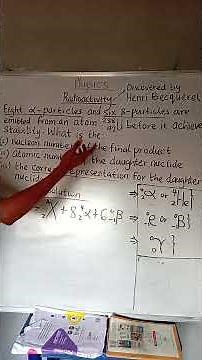 Physics
Radioactivity: Discovered by
Henri Becquerel
Eight α-particles and six β-particles are
emitted from an atom 238 92 U before it achieve
stability. What is the
nucleon number the final product
(ii) Atomic number the daughter nuclide
the correct representation for the daughter
nuclide
Solution
X + 8 4 2 α + 6 0 -1 β
⇒ 4 2 α or 4 2 He}
⇒ 0 -1 e or 0 -1 β}
⇒ 0 0 γ}